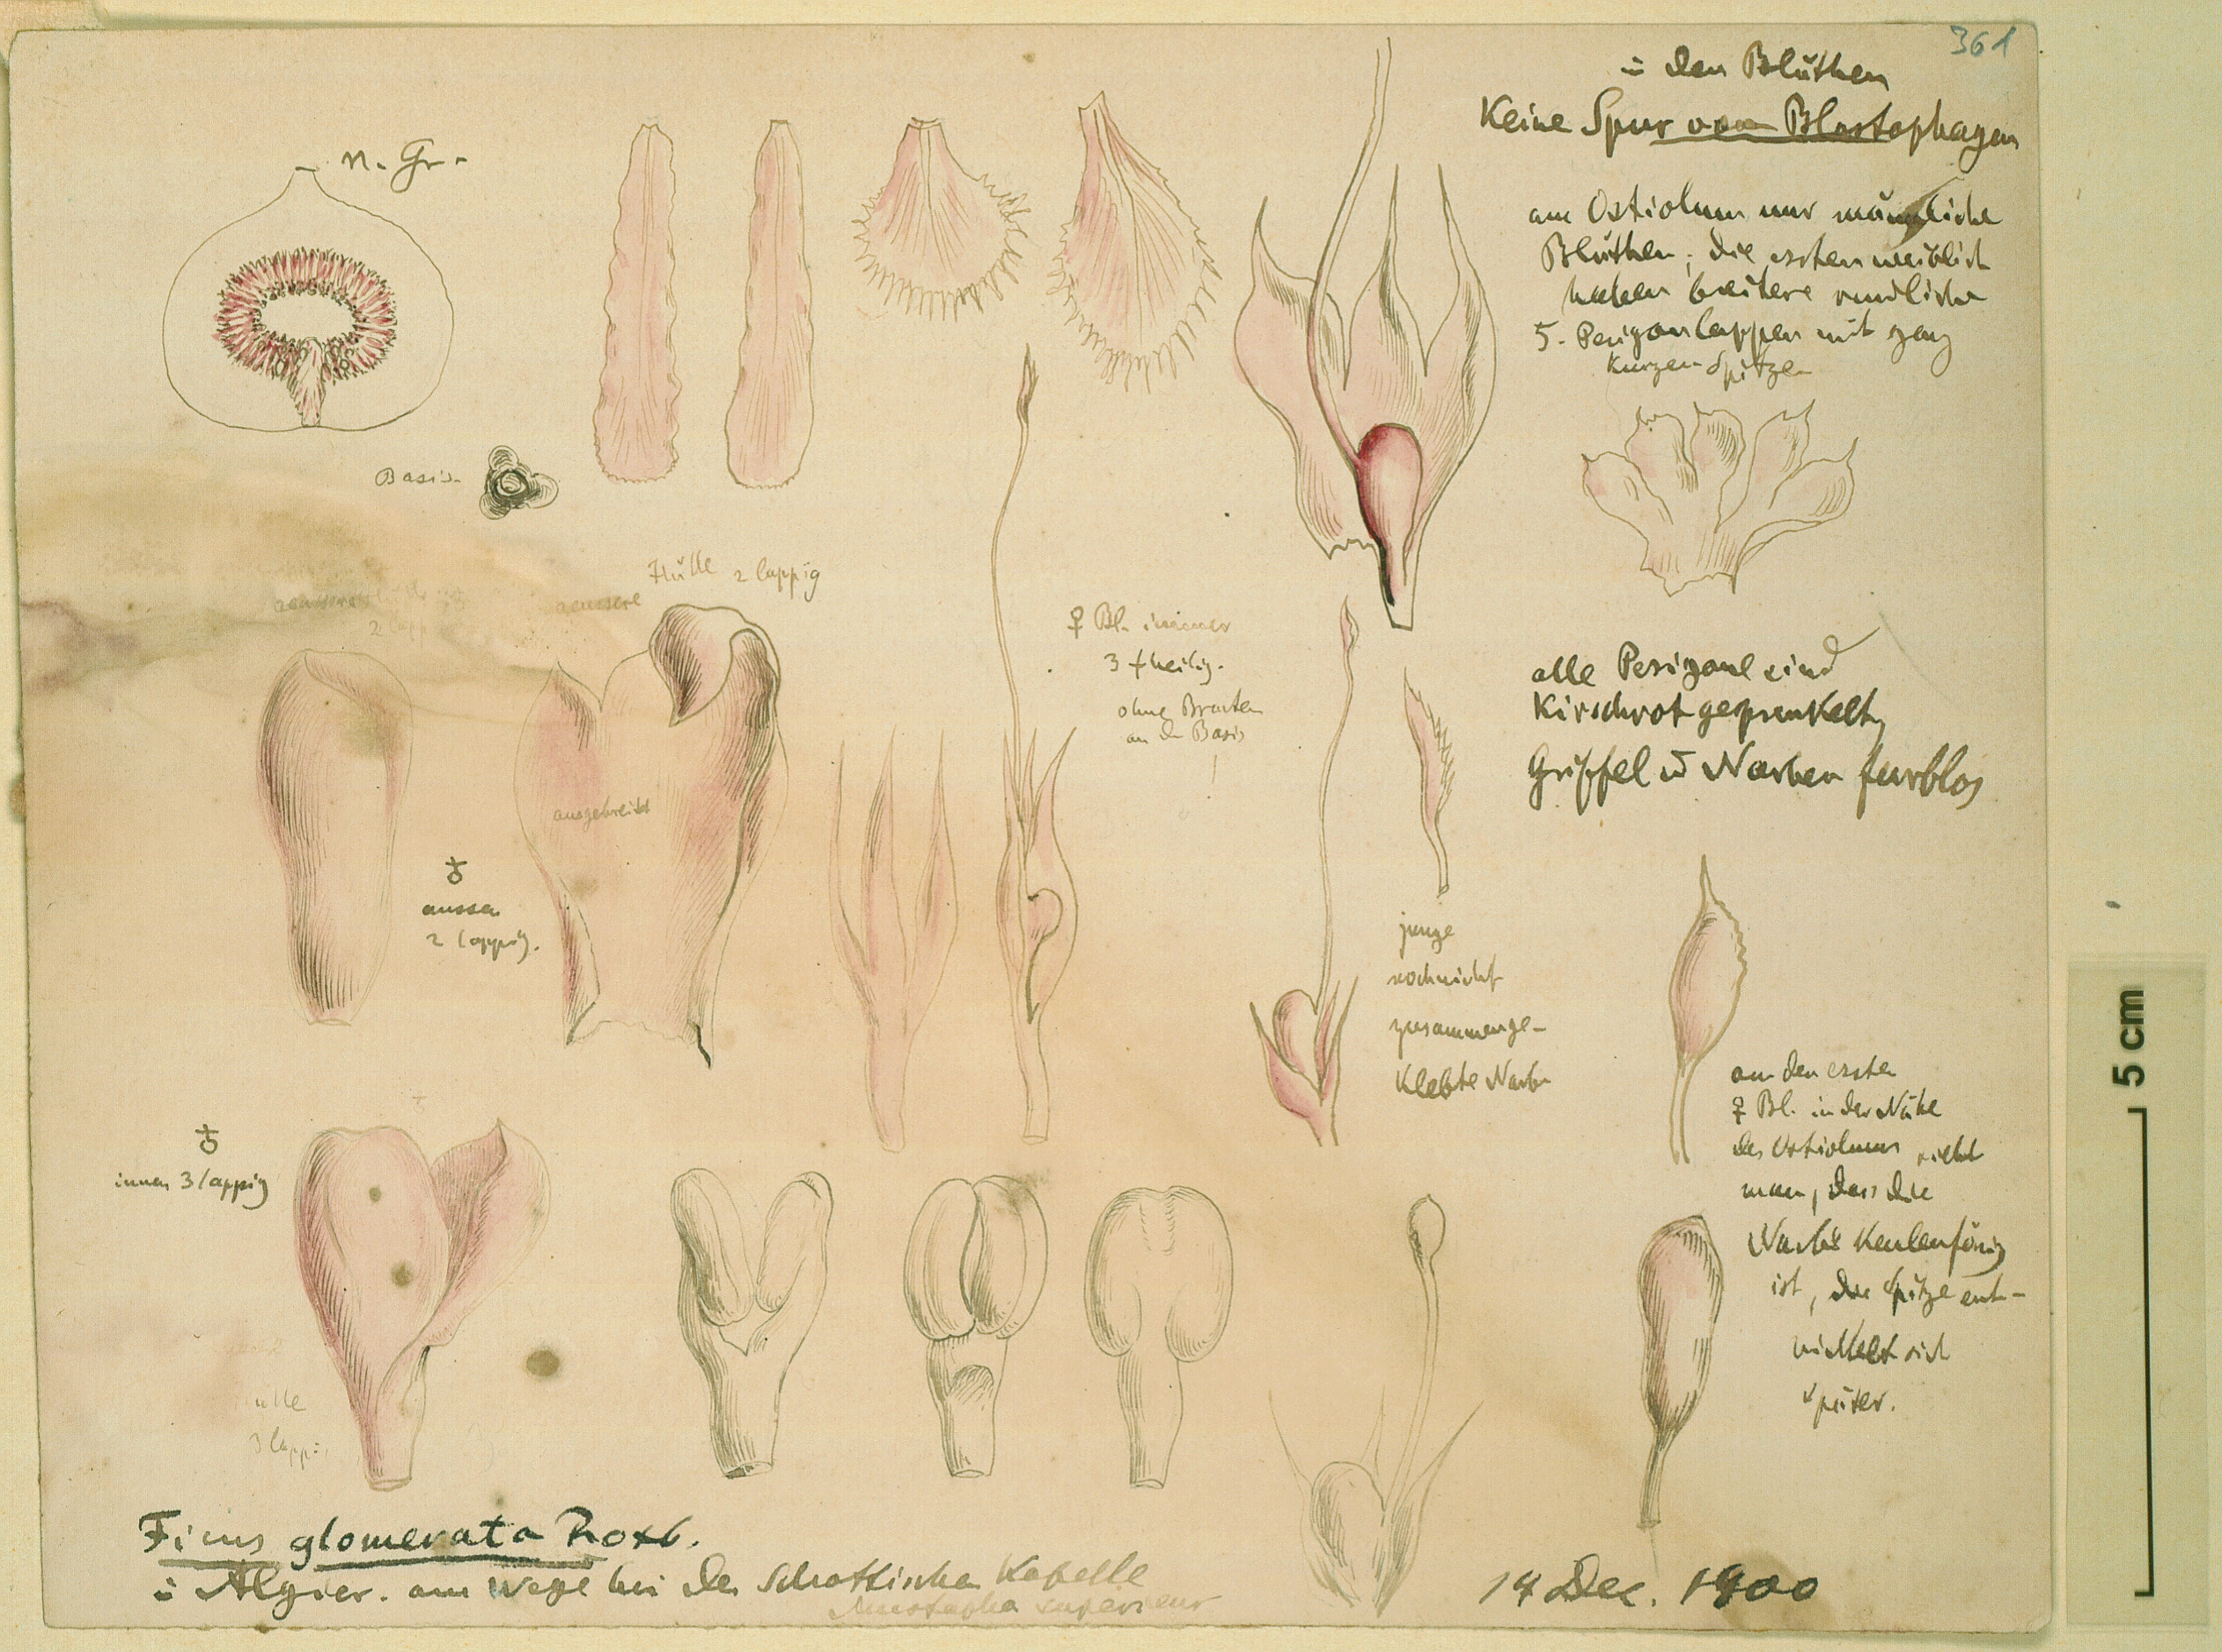 361
in den Blüthen
Keine Spur von Blastophagen
am Ostiolum nur männliche
Blüthen; die ersten weiblich
haben breitere rundliche
5. Perigonlappen mit ganz
kurzen Spitzen
n. Gr.
Basis
Hülle 2 lappig
aeussere
aeussere
ausgebreitet
♀ Bl. immer
3 theilig.
ohne Bracten
an der Basis
alle Perigone sind
Kirschrot gesprenkelt,
Griffel u Narben farblos
♂
aussen
2 lappig.
junge
noch nicht
zusammenge-
klebte Narbe
an den ersten
♀ Bl. in der Nähe
des Ostiolums sieht
man, dass die
Narbe Keulenförmig
ist, die Spitze ent-
wickelt sich
später.
♂
innen 3 lappig
3 lappig
Ficus glomerata Roxb.
in Algier. am Wege bei der Schottischen Kapelle
Mustapha superieur
14 Dec. 1900
5 cm